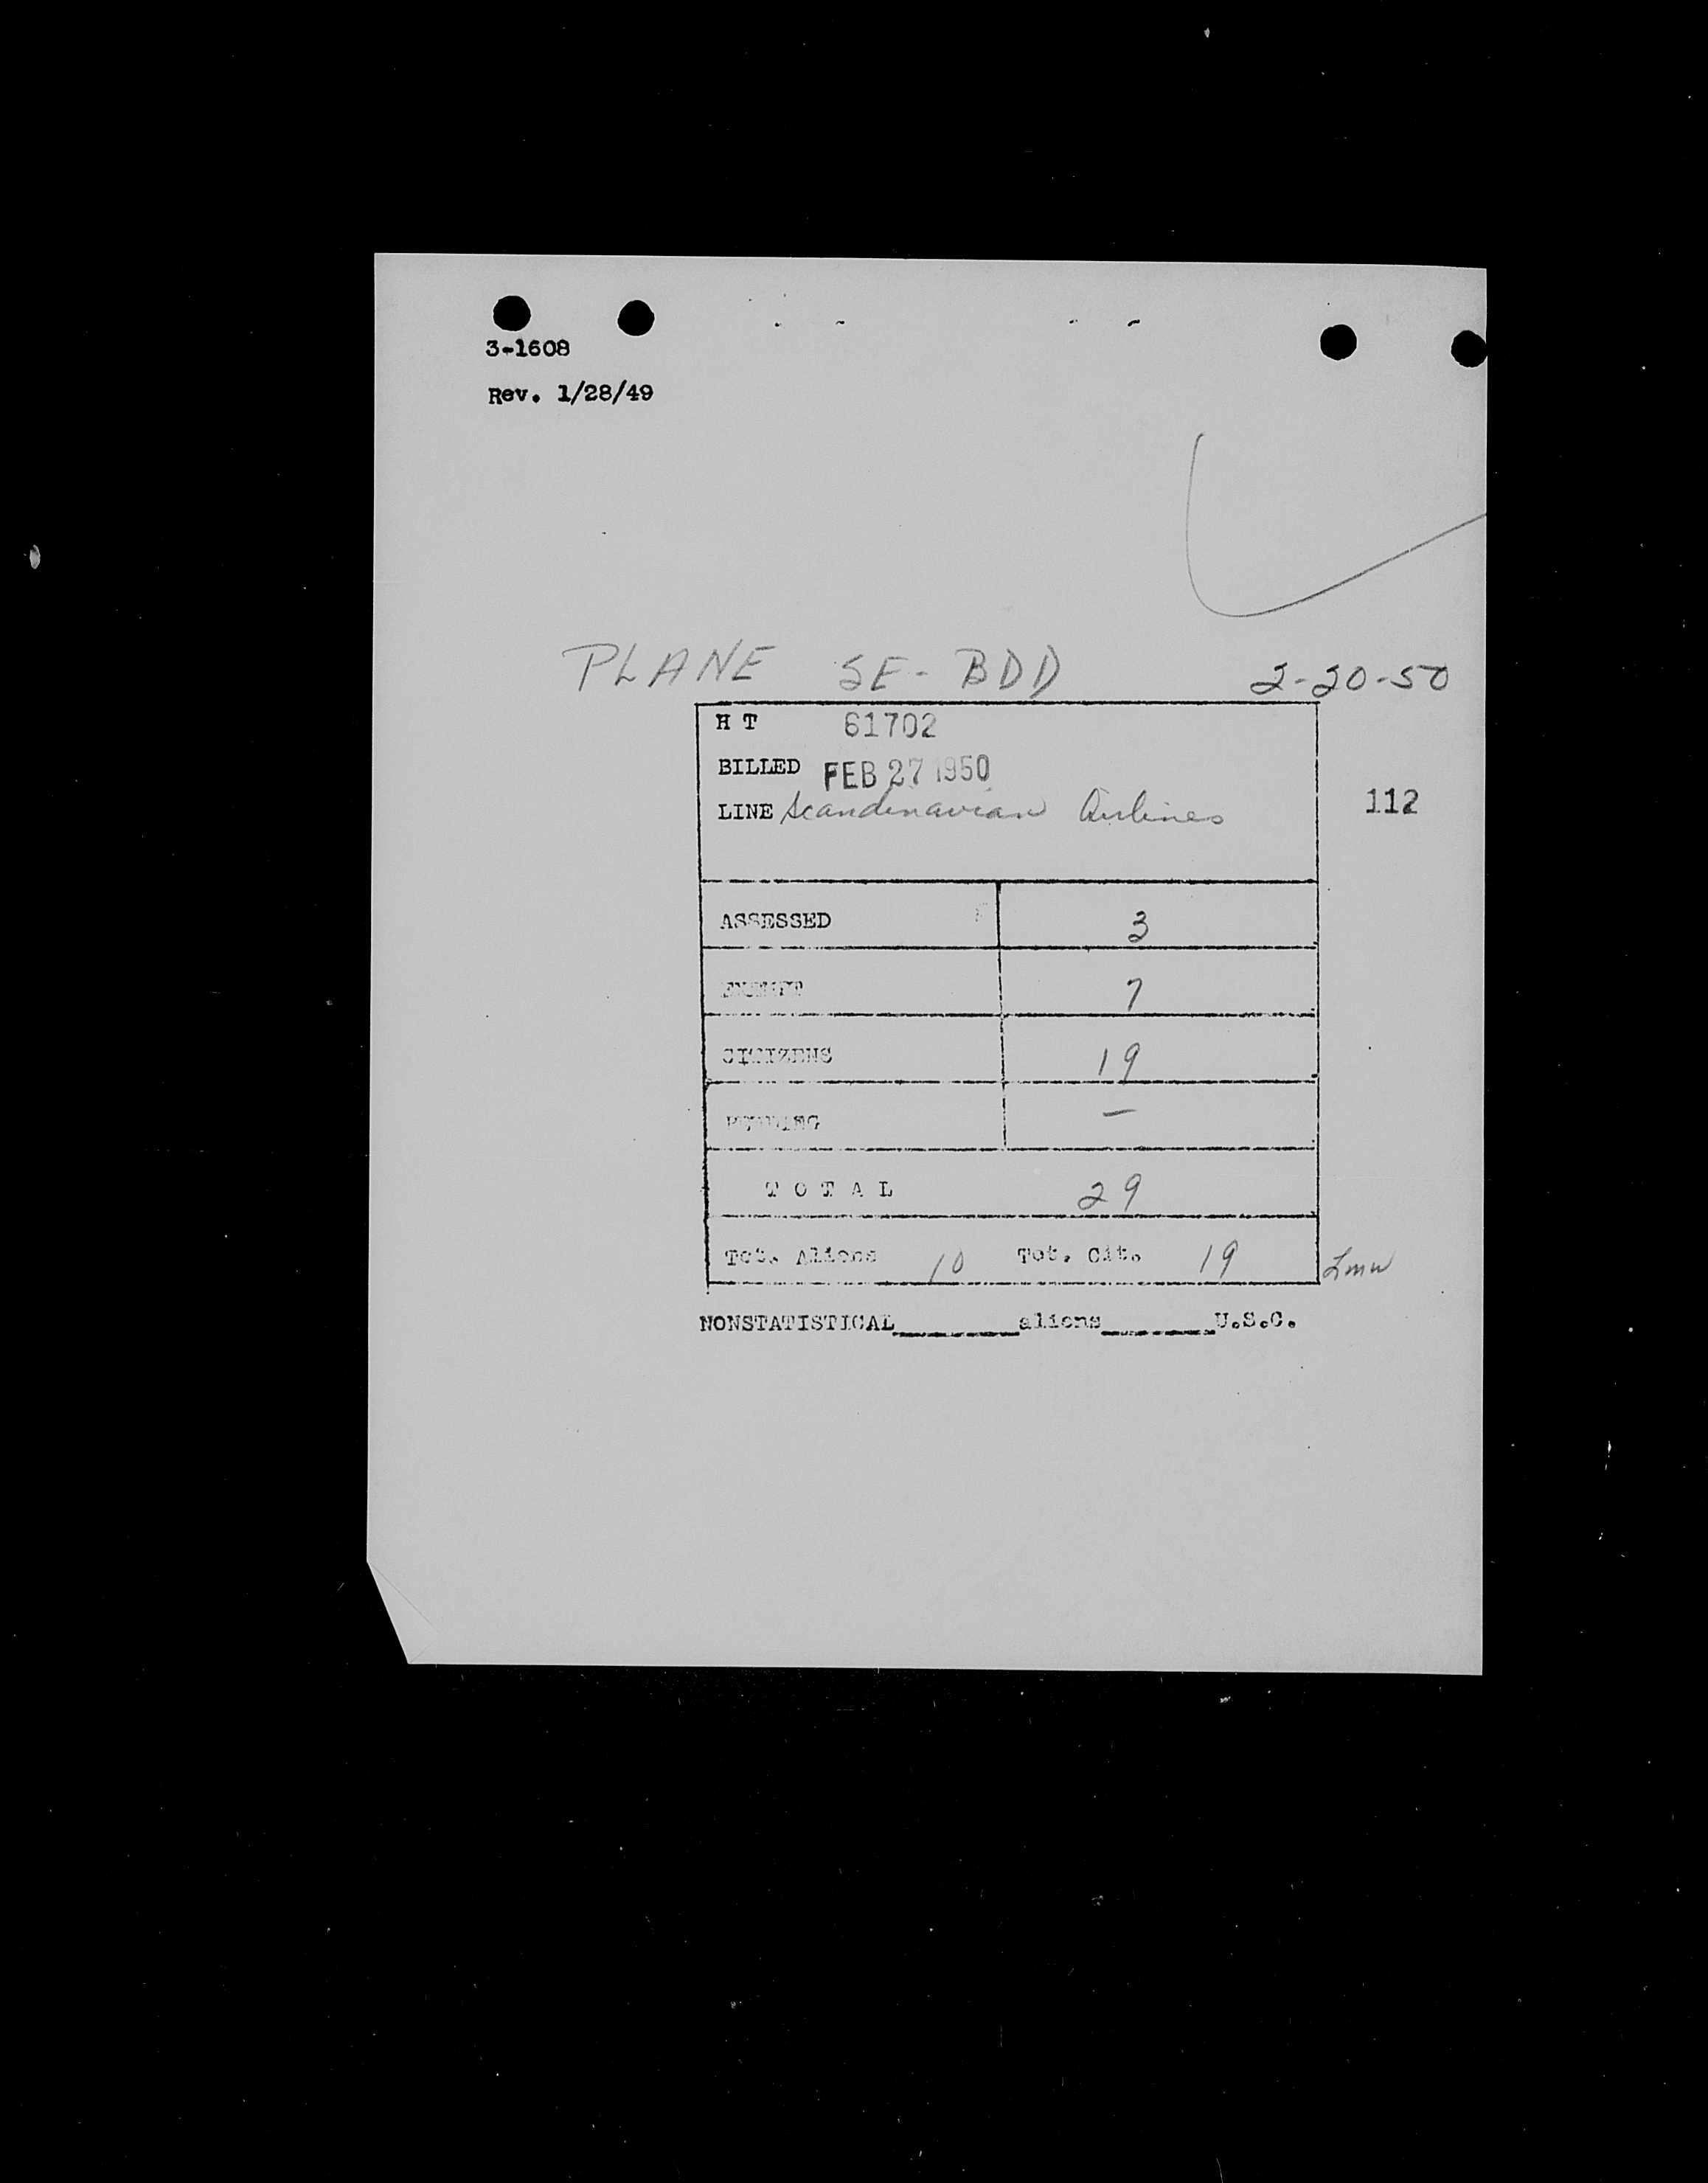 3-1608
Rev. 1/28/49
PLANE SE-BDD 2-20-50
H T 61702
BILLED FEB 27 1950
LINE Scandinavian Airlines
112
ASSESSED 3
EXEMPT 7
CITIZENS 19
PENDING —
T O T A L 29
Tot. Aliens 10 Tot. Cit. 19
Lmw
NONSTATISTICAL________aliens________U.S.C.